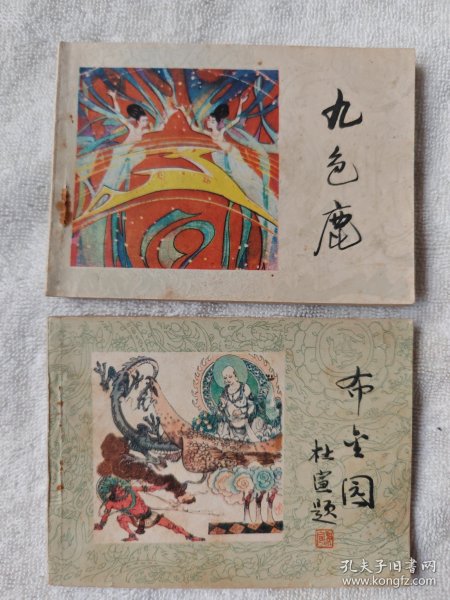 九色鹿
布金园
杜宣题
孔夫子旧书网
www.kongfz.com